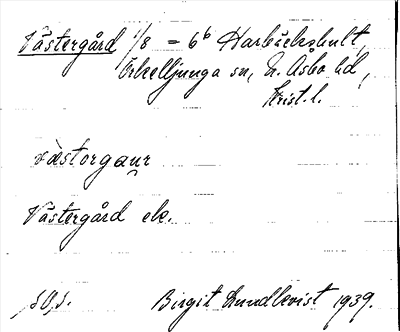 Västergård 1/8 = 6b Harbäckshult,
Örkelljunga sn, N. Åsbo hd,
Krist. l.
væstorgaur
Västergård ek.
Birgit Lundkvist 1939.